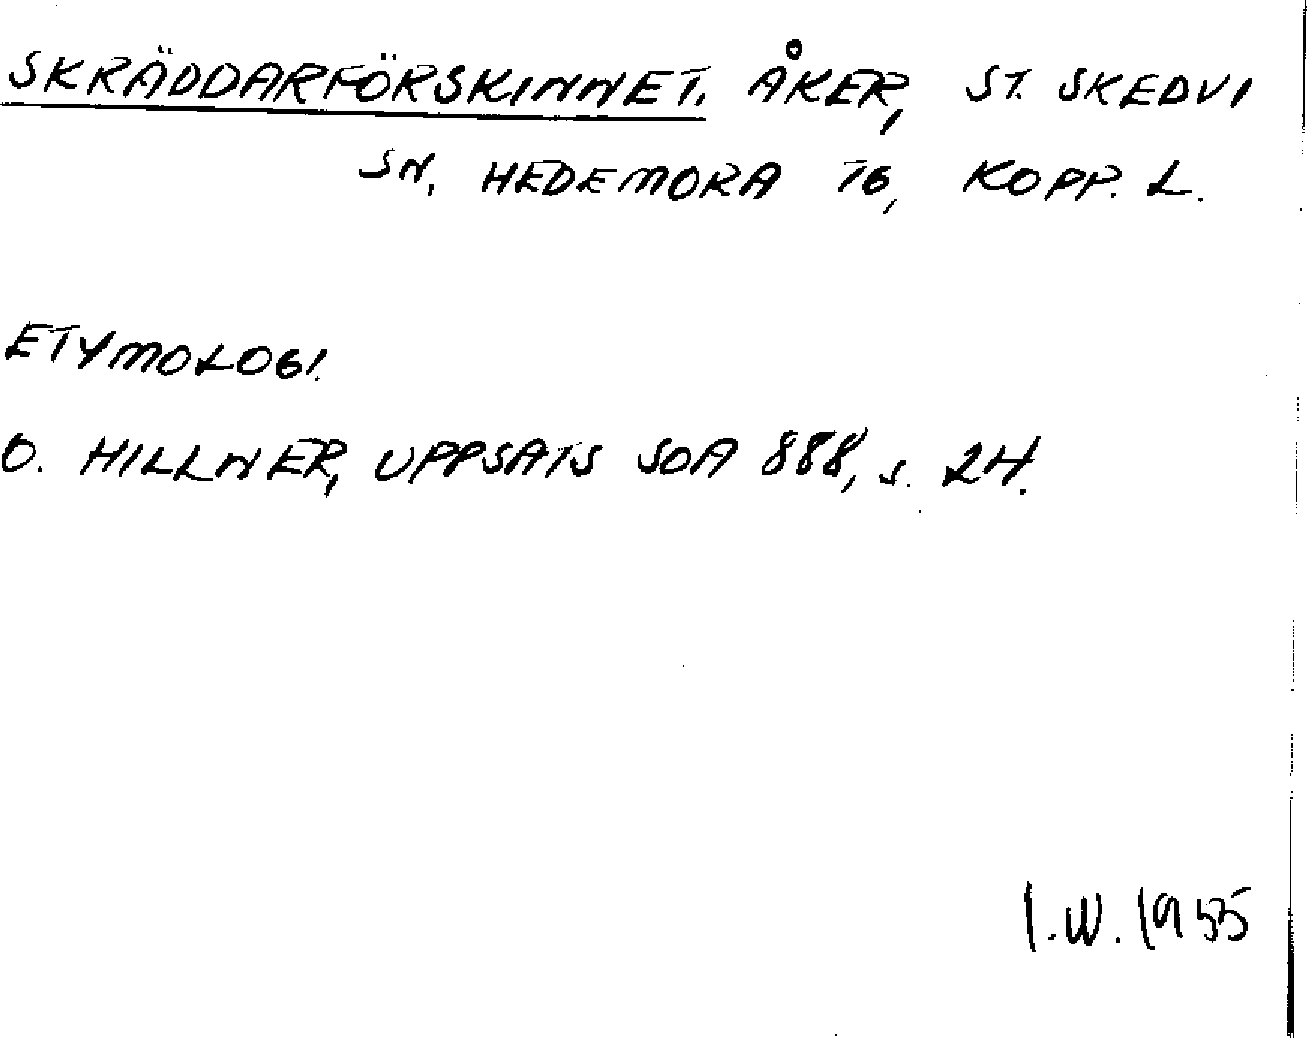 SKRÄDDARFÖRSKINNET. ÅKER, ST. SKEDVI
SN, HEDEMORA TG, KOPP. L.
ETYMOLOGI.
O. HILLNER, UPPSATS SOA 888, s. 24.
I.W. 1955